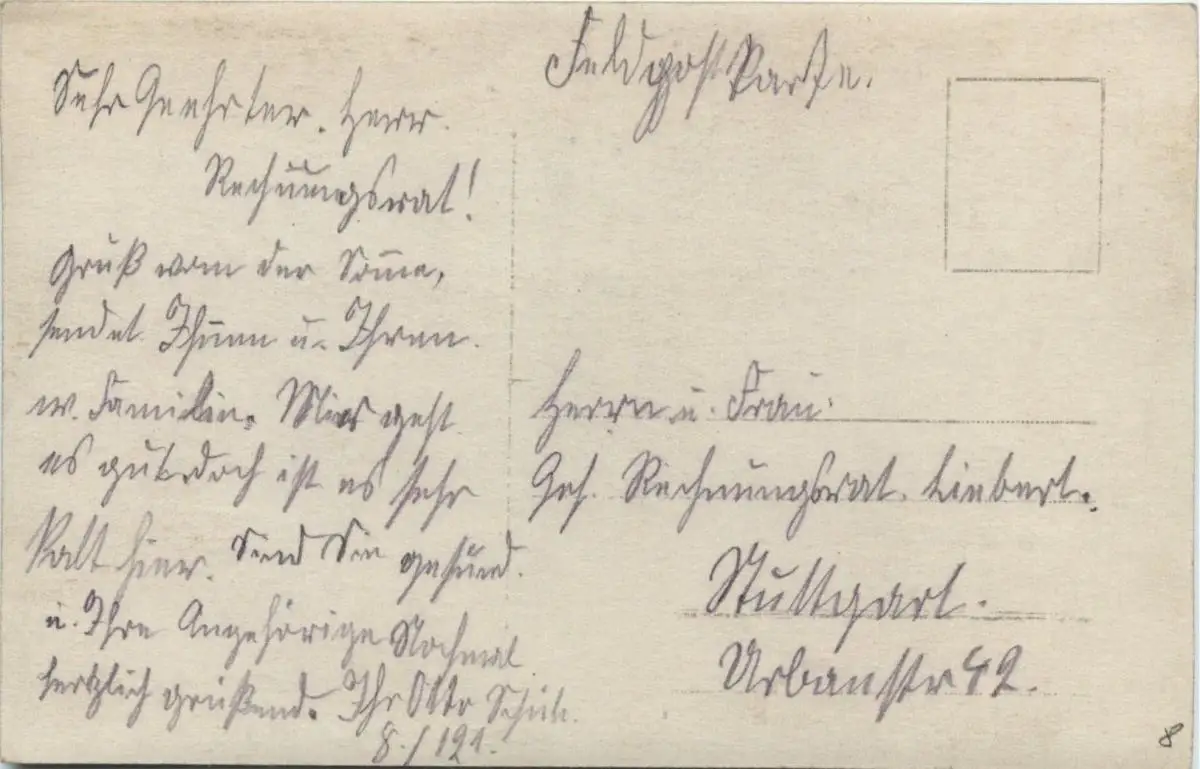 Feldpost Karte.
Sehr Geehrter. Herr.
Rechnungsrat!
Gruß vom der Somme,
sendet Ihnen u. Ihren.
w. Familie. Mir geht
es gut doch ist es sehr
Kalt hier. Sind Sie gesund.
u. Ihre Angehörige Nochmal
herzlich grüßend. Ihr Otto
8./121.
Herrn u. Frau.
Geh. Rechnungsrat. Liebert.
Stuttgart.
Urbanstr 42.
8